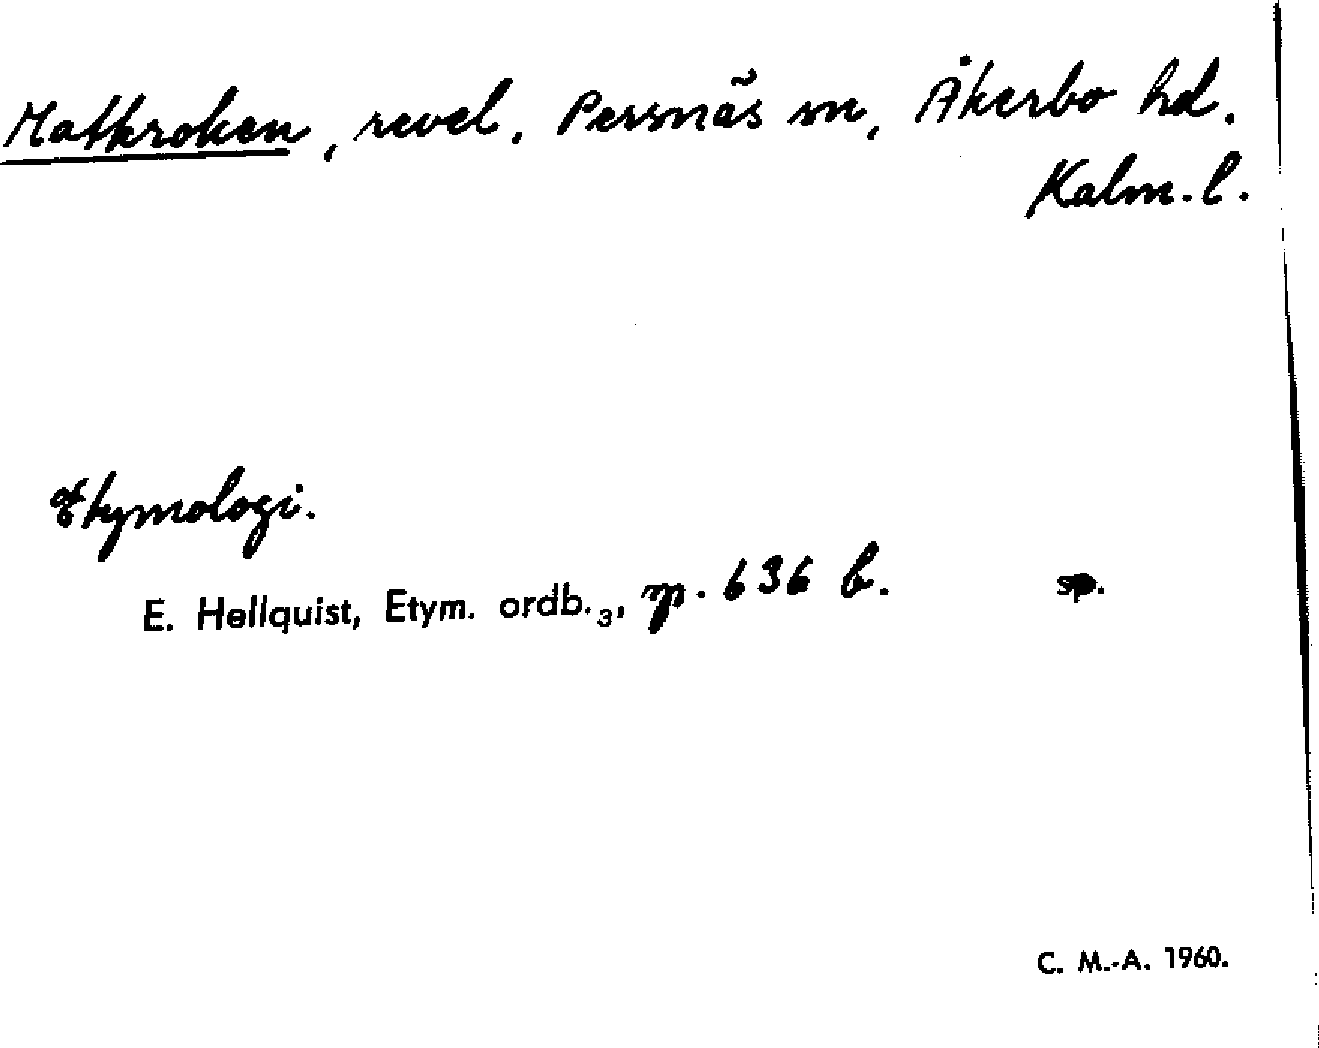 Matkroken, revel, Persnäs sn, Åkerbo hd.
Kalm. l.
Etymologi.
E. Hellquist, Etym. ordb.₃, p. 636 b. sp.
C. M.-A. 1960.